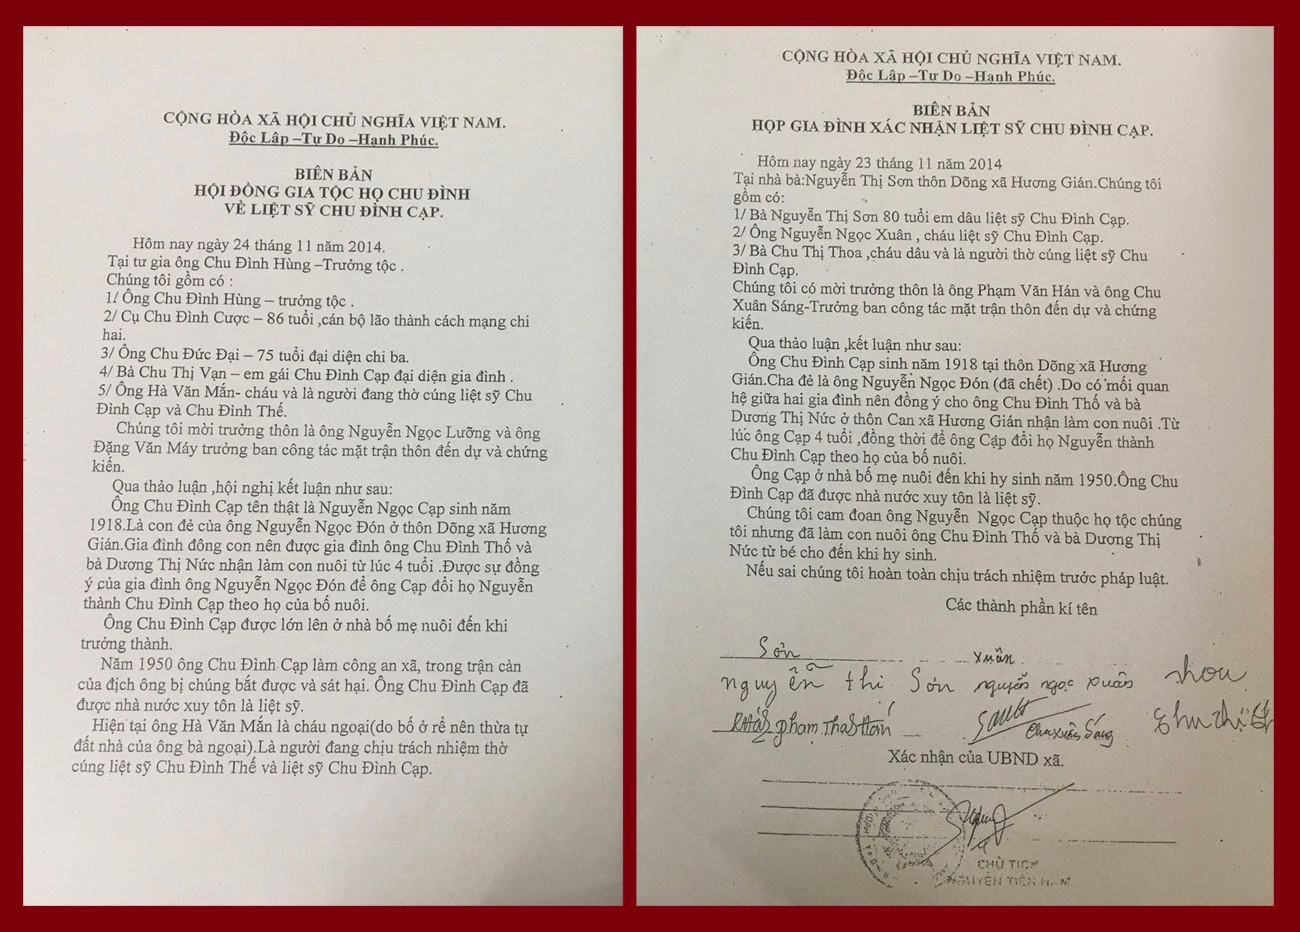 CỘNG HÒA XÃ HỘI CHỦ NGHĨA VIỆT NAM.
Độc Lập –Tự Do –Hạnh Phúc.
BIÊN BẢN
HỘI ĐỒNG GIA TỘC HỌ CHU ĐÌNH
VỀ LIỆT SỸ CHU ĐÌNH CẠP.
Hôm nay ngày 24 tháng 11 năm 2014.
Tại tư gia ông Chu Đình Hùng –Trưởng tộc .
Chúng tôi gồm có :
1/ Ông Chu Đình Hùng – trưởng tộc .
2/ Cụ Chu Đình Cược – 86 tuổi ,cán bộ lão thành cách mạng chi
hai.
3/ Ông Chu Đức Đại – 75 tuổi đại diện chi ba.
4/ Bà Chu Thị Vạn – em gái Chu Đình Cạp đại diện gia đình .
5/ Ông Hà Văn Mắn- cháu và là người đang thờ cúng liệt sỹ Chu
Đình Cạp và Chu Đình Thế.
Chúng tôi mời trưởng thôn là ông Nguyễn Ngọc Lưỡng và ông
Đặng Văn Máy trưởng ban công tác mặt trận thôn đến dự và chứng
kiến.
Qua thảo luận ,hội nghị kết luận như sau:
Ông Chu Đình Cạp tên thật là Nguyễn Ngọc Cạp sinh năm
1918.Là con đẻ của ông Nguyễn Ngọc Đón ở thôn Dõng xã Hương
Gián.Gia đình đông con nên được gia đình ông Chu Đình Thố và
bà Dương Thị Nức nhận làm con nuôi từ lúc 4 tuổi .Được sự đồng
ý của gia đình ông Nguyễn Ngọc Đón để ông Cạp đổi họ Nguyễn
thành Chu Đình Cạp theo họ của bố nuôi.
Ông Chu Đình Cạp được lớn lên ở nhà bố mẹ nuôi đến khi
trưởng thành.
Năm 1950 ông Chu Đình Cạp làm công an xã, trong trận càn
của địch ông bị chúng bắt được và sát hại. Ông Chu Đình Cạp đã
được nhà nước xuy tôn là liệt sỹ.
Hiện tại ông Hà Văn Mắn là cháu ngoại(do bố ở rể nên thừa tự
đất nhà của ông bà ngoại).Là người đang chịu trách nhiệm thờ
cúng liệt sỹ Chu Đình Thế và liệt sỹ Chu Đình Cạp.
CỘNG HÒA XÃ HỘI CHỦ NGHĨA VIỆT NAM.
Độc Lập –Tự Do –Hạnh Phúc.
BIÊN BẢN
HỌP GIA ĐÌNH XÁC NHẬN LIỆT SỸ CHU ĐÌNH CẠP.
Hôm nay ngày 23 tháng 11 năm 2014
Tại nhà bà:Nguyễn Thị Sơn thôn Dõng xã Hương Gián.Chúng tôi
gồm có:
1/ Bà Nguyễn Thị Sơn 80 tuổi em dâu liệt sỹ Chu Đình Cạp.
2/ Ông Nguyễn Ngọc Xuân , cháu liệt sỹ Chu Đình Cạp.
3/ Bà Chu Thị Thoa ,cháu dâu và là người thờ cúng liệt sỹ Chu
Đình Cạp.
Chúng tôi có mời trưởng thôn là ông Phạm Văn Hán và ông Chu
Xuân Sáng-Trưởng ban công tác mặt trận thôn đến dự và chứng
kiến.
Qua thảo luận ,kết luận như sau:
Ông Chu Đình Cạp sinh năm 1918 tại thôn Dõng xã Hương
Gián.Cha đẻ là ông Nguyễn Ngọc Đón (đã chết) .Do có mối quan
hệ giữa hai gia đình nên đồng ý cho ông Chu Đình Thố và bà
Dương Thị Nức ở thôn Can xã Hương Gián nhận làm con nuôi .Từ
lúc ông Cạp 4 tuổi ,đồng thời để ông Cạp đổi họ Nguyễn thành
Chu Đình Cạp theo họ của bố nuôi.
Ông Cạp ở nhà bố mẹ nuôi đến khi hy sinh năm 1950.Ông Chu
Đình Cạp đã được nhà nước xuy tôn là liệt sỹ.
Chúng tôi cam đoan ông Nguyễn Ngọc Cạp thuộc họ tộc chúng
tôi nhưng đã làm con nuôi ông Chu Đình Thố và bà Dương Thị
Nức từ bé cho đến khi hy sinh.
Nếu sai chúng tôi hoàn toàn chịu trách nhiệm trước pháp luật.
Các thành phần kí tên
Sơn xuân
nguyễn thi Sơn nguyễn ngọc xuân
phạm Chu xuân Sáng chu thị
Xác nhận của UBND xã.
CHỦ TỊCH
NGUYỄN TIẾN NAM